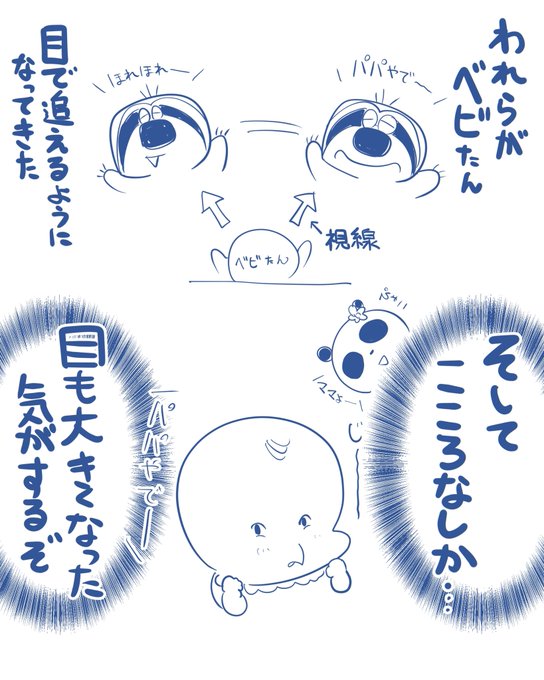 われらが
ベビたん
パパやでー
ほれほれー
目で追えるように
なってきた
視線
ベビたん
そして
こころなしか…
ママよー
じー
パパやでー
目も大きくなった
気がするぞ